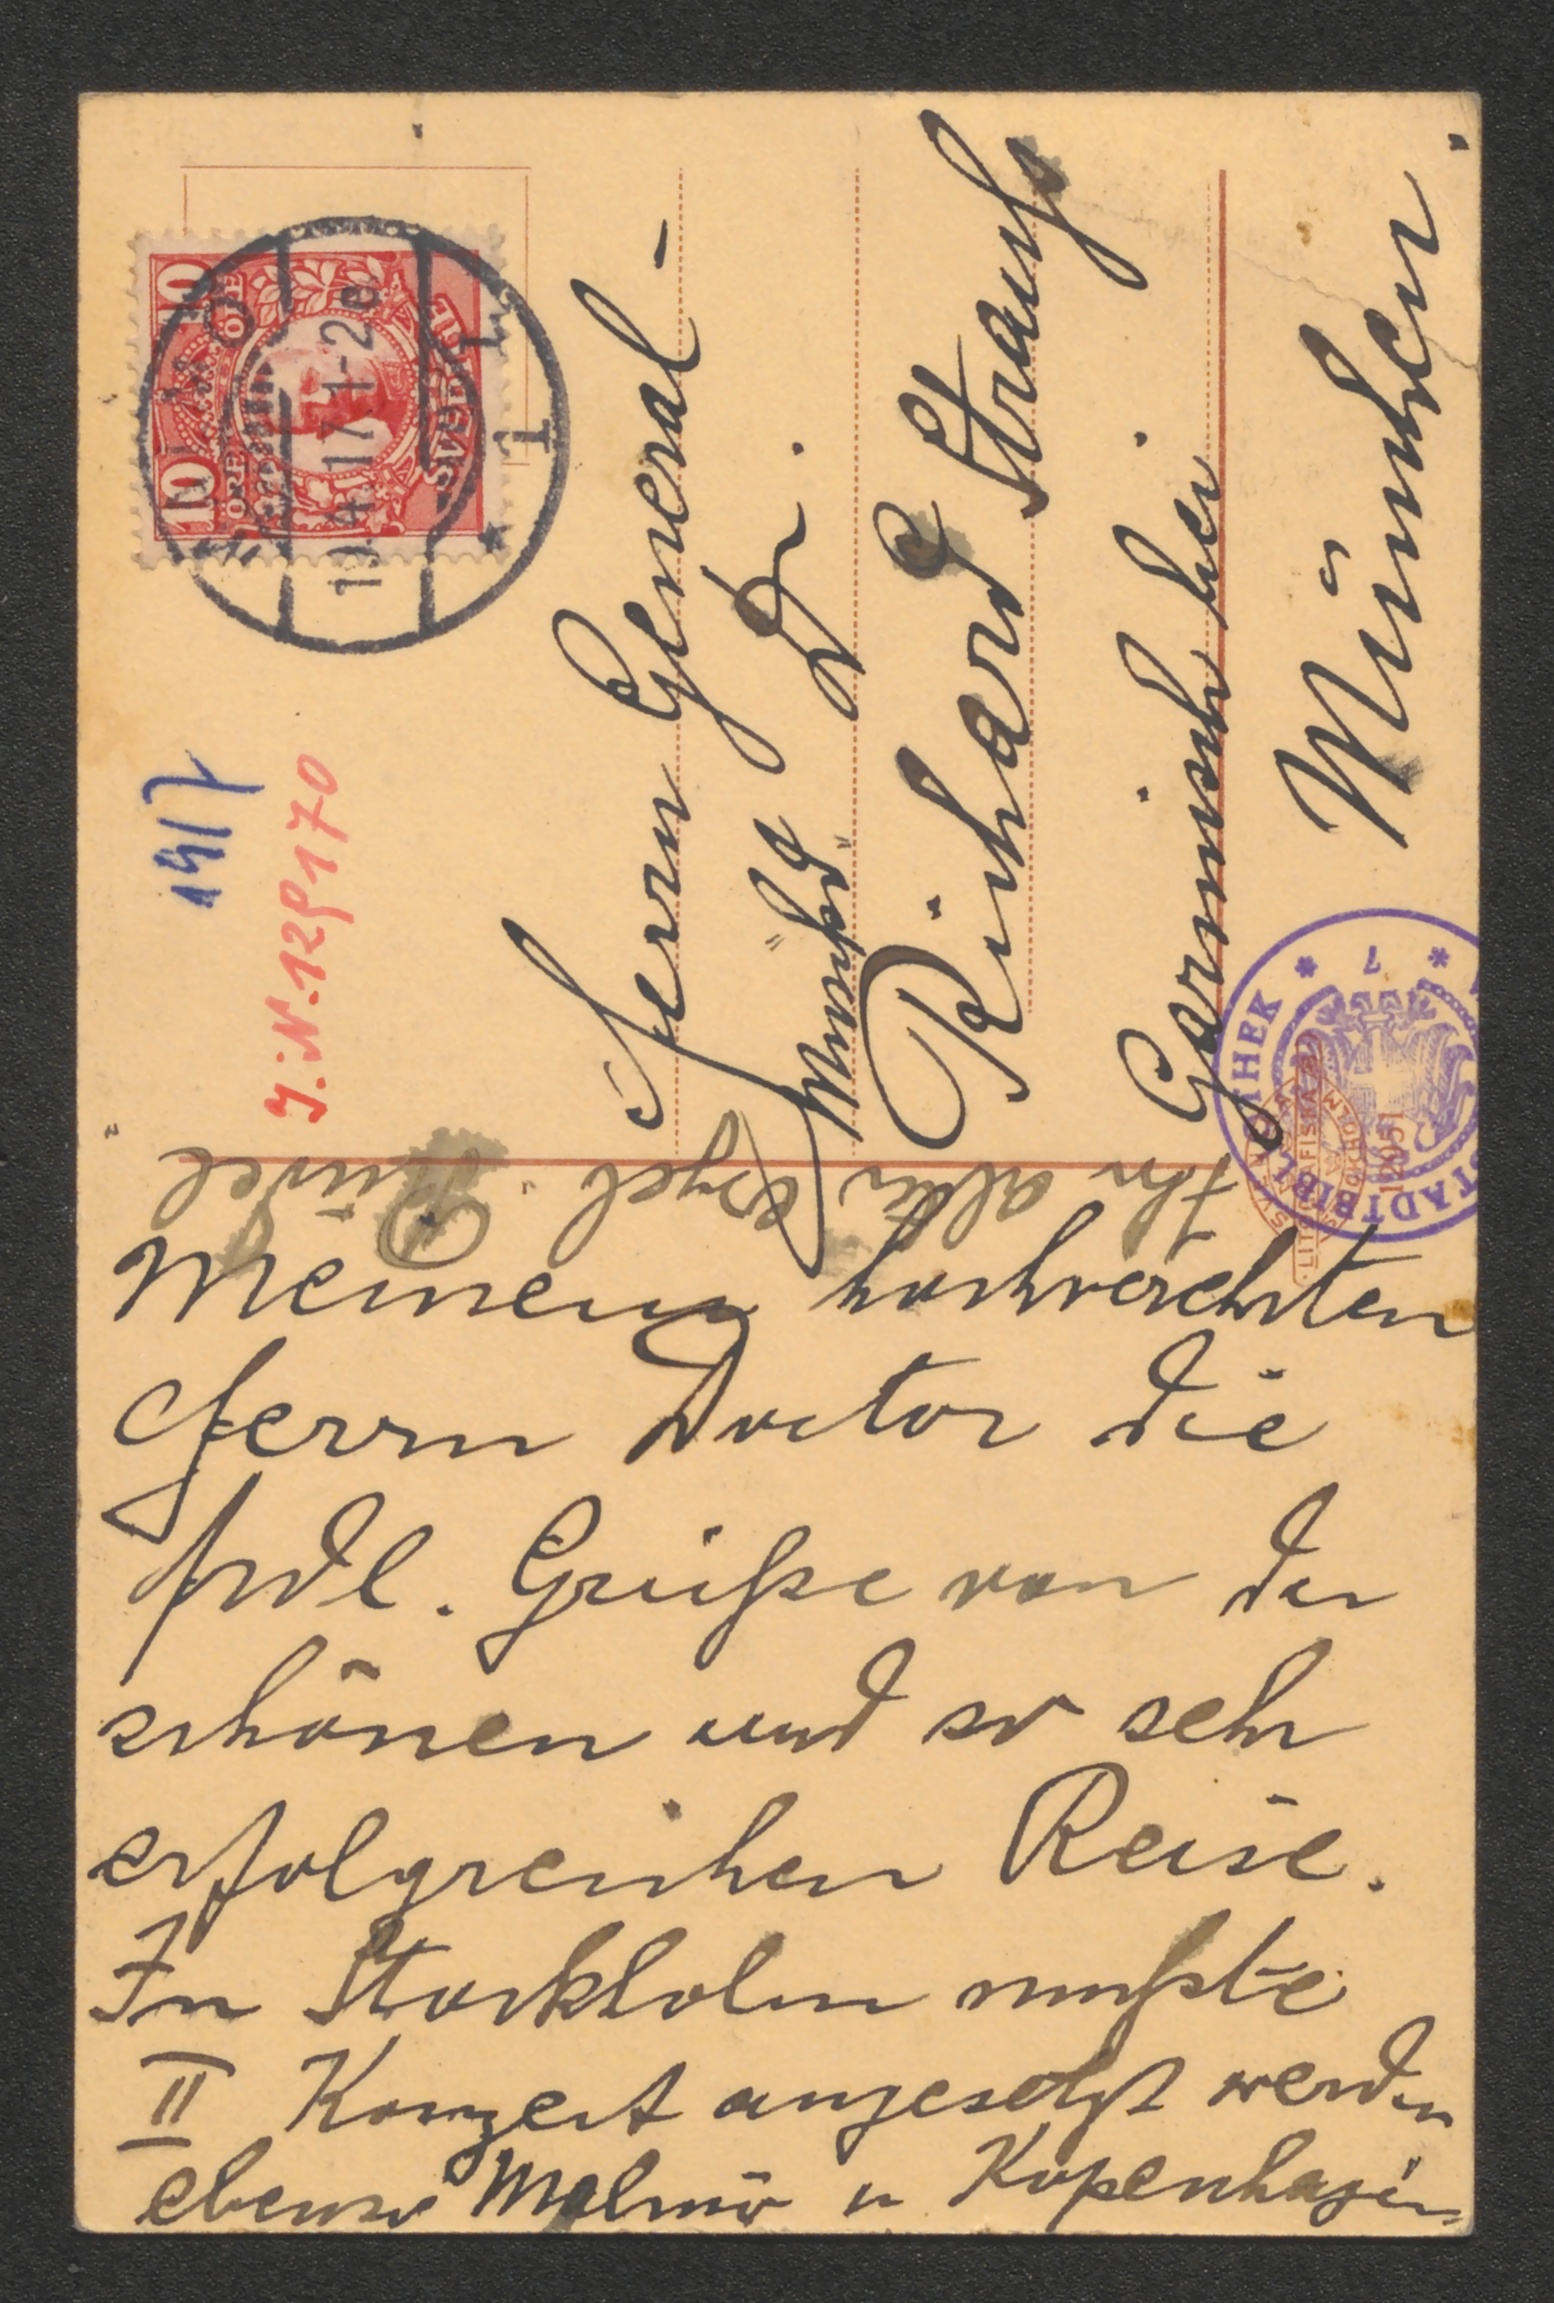 10 10
ÖRE ÖRE
SVERIGE
19.4.17.1-2e
1
1917
J.N. 129170
Herrn General-
"Musikd" Dr.
Richard Strauß
Garmisch bei
München.
STADTBIBLIOTHEK * 7 *
Meinem hochverehrten
Herrn Doctor die
frdl. Grüße von der
schönen und so sehr
erfolgreichen Reise.
In Stockholm mußte
II Konzert angesetzt werden
ebenso Malmö u Kopenhagen
Ihr alter